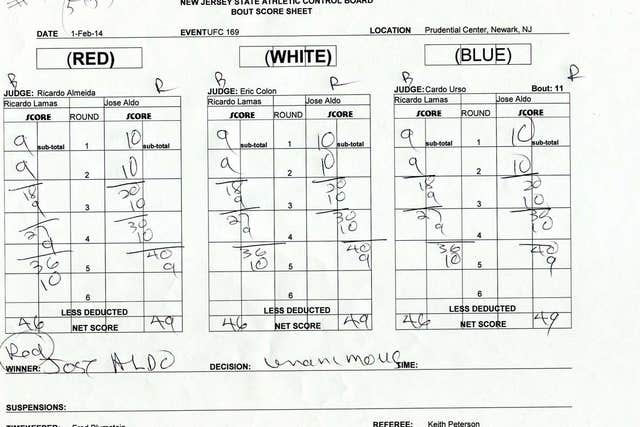 NEW JERSEY STATE ATHLETIC CONTROL BOARD
BOUT SCORE SHEET
DATE 1-Feb-14 EVENT UFC 169 LOCATION Prudential Center, Newark, NJ
(RED) (WHITE) (BLUE)
B R B R B R
JUDGE: Ricardo Almeida JUDGE: Eric Colon JUDGE: Cardo Urso Bout: 11
Ricardo Lamas Jose Aldo Ricardo Lamas Jose Aldo Ricardo Lamas Jose Aldo
SCORE ROUND SCORE SCORE ROUND SCORE SCORE ROUND SCORE
9 sub-total 1 10 sub-total 9 sub-total 1 10 sub-total 9 sub-total 1 10 sub-total
9 2 10 9 2 10 9 2 10
18 20 18 20 18 20
9 3 10 9 3 10 9 3 10
27 30 27 30 27 30
9 4 10 9 4 10 9 4 10
36 40 36 40 36 40
10 5 9 10 5 9 10 5 9
6 6 6
LESS DEDUCTED LESS DEDUCTED LESS DEDUCTED
46 NET SCORE 49 46 NET SCORE 49 46 NET SCORE 49
Red
WINNER: Jose ALDO DECISION: unanimous TIME:
SUSPENSIONS:
TIMEKEEPER: Fred Blumstein REFEREE: Keith Peterson